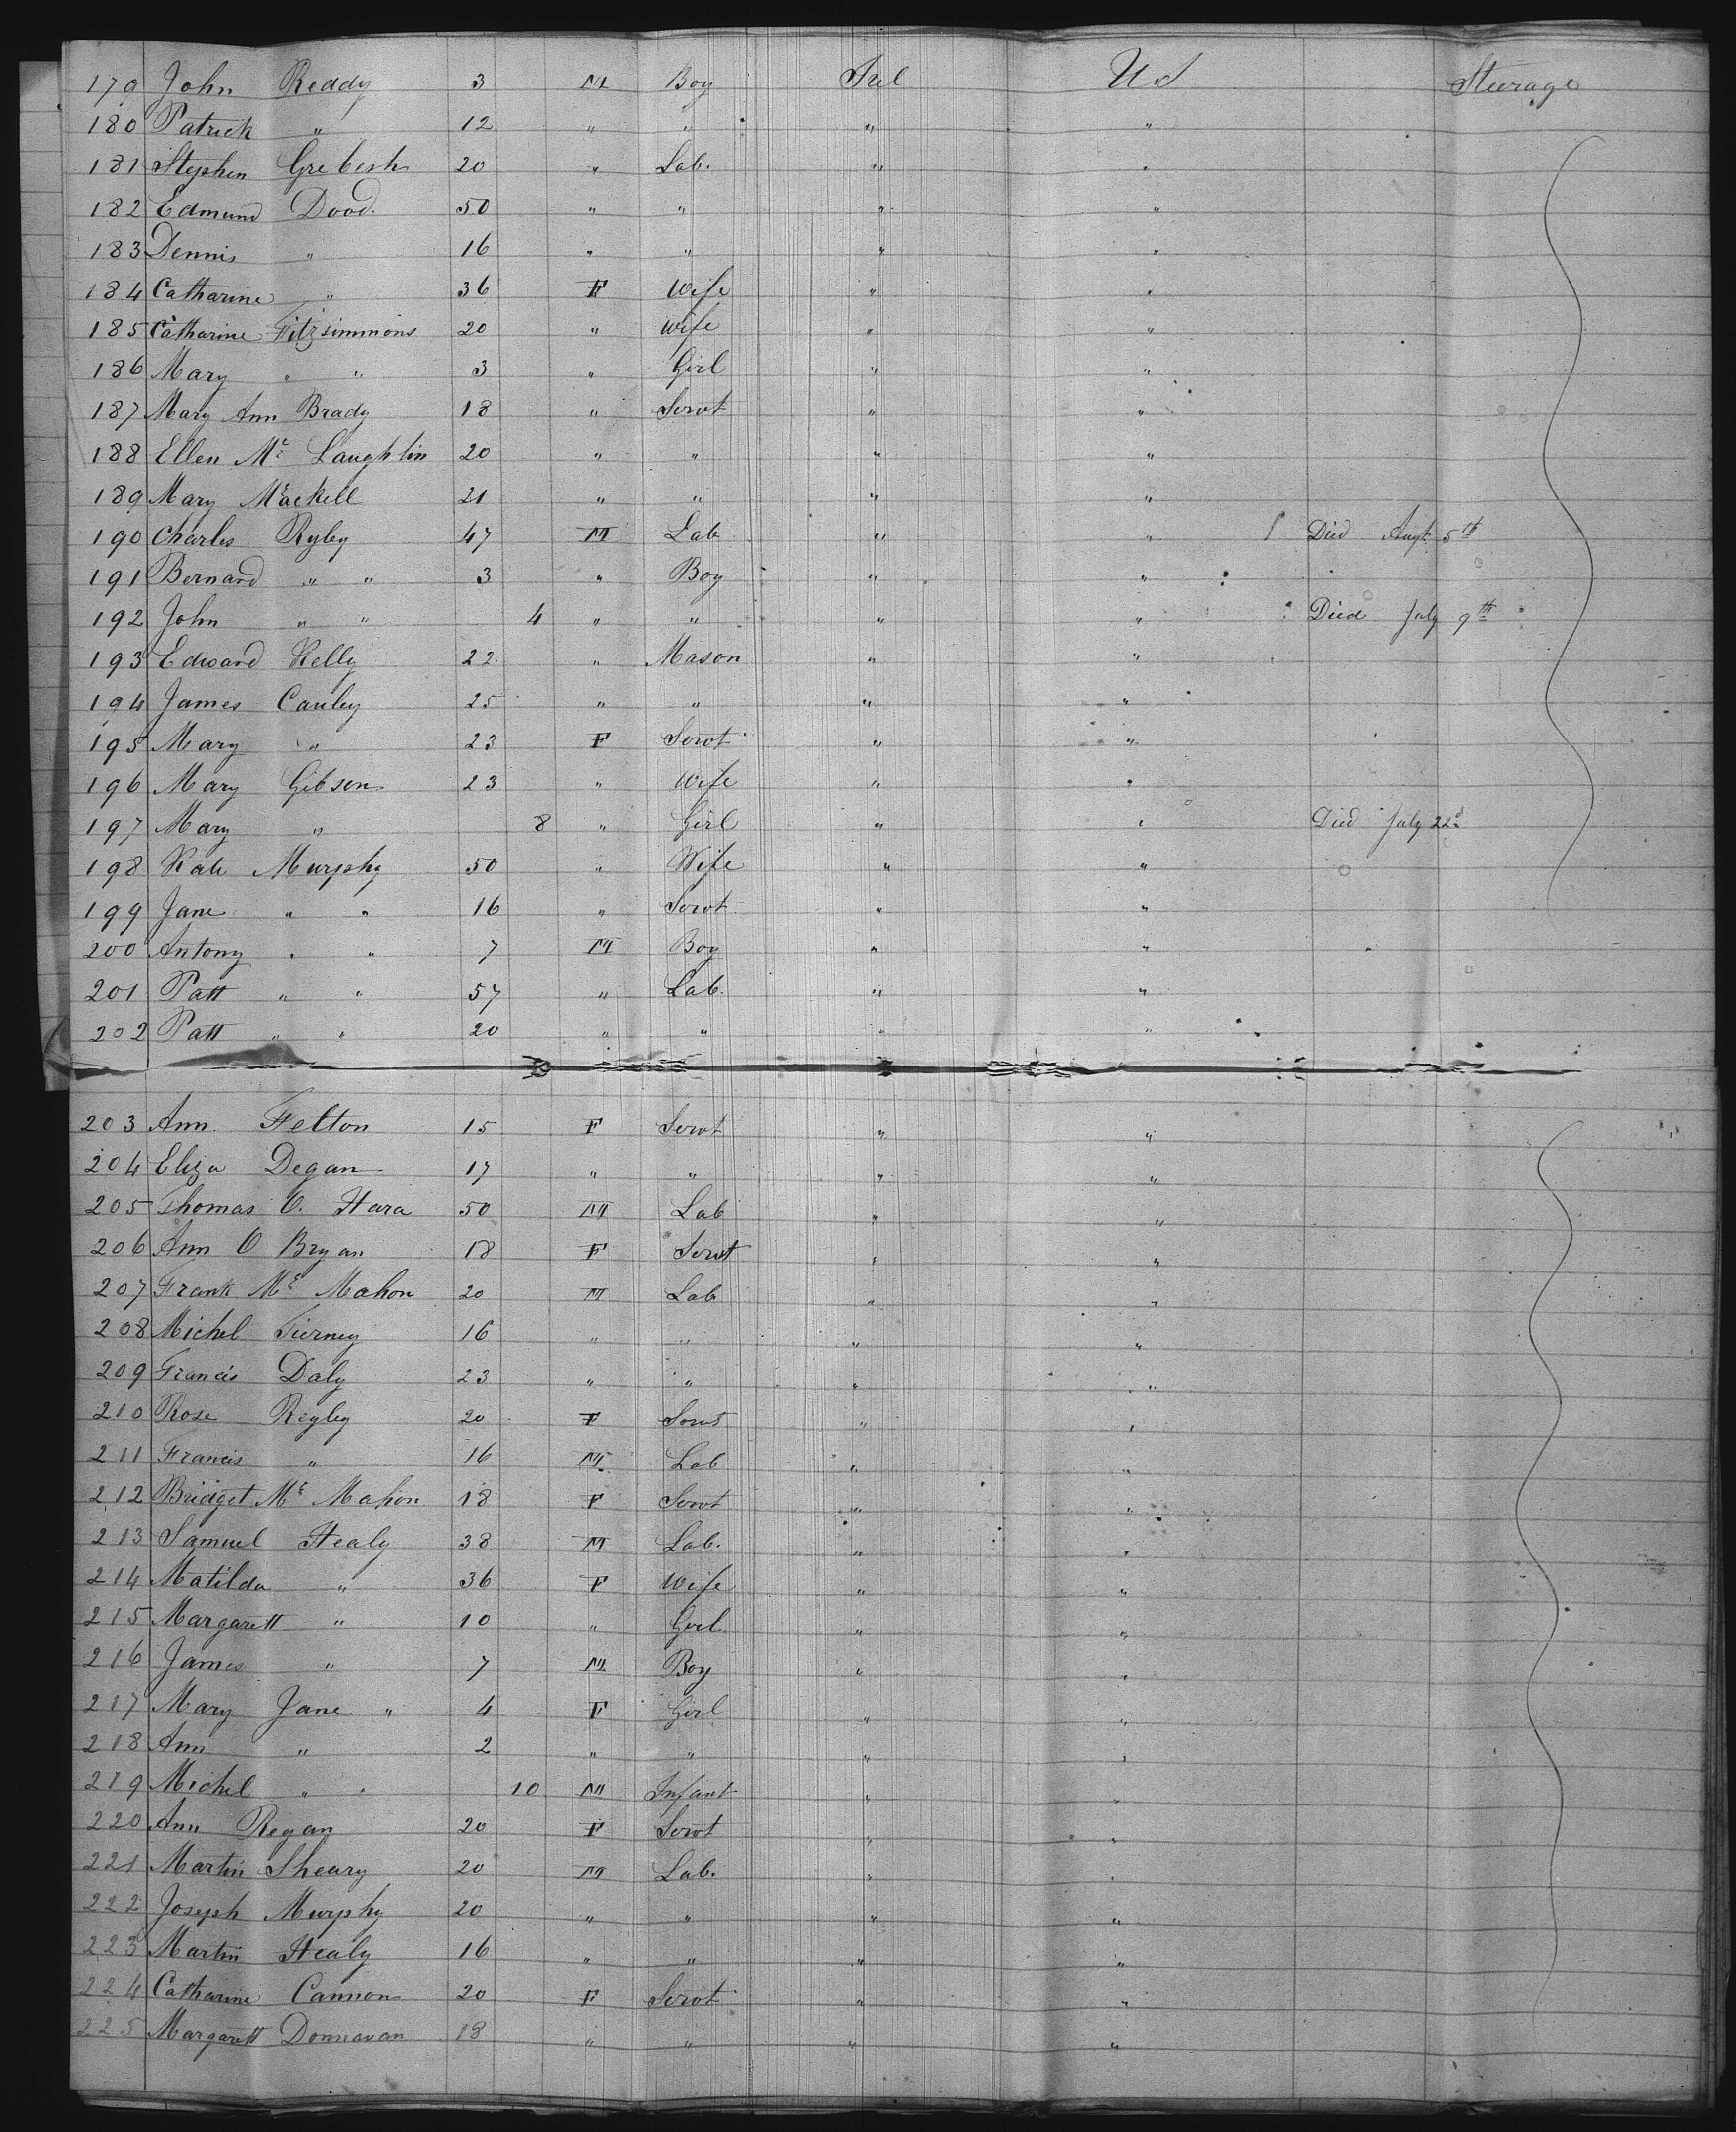 179 John Reddy 3 M Boy Irel US Steerage
180 Patrick " 12 " " " "
181 Stephen Grebesh 20 " Lab. " "
182 Edmund Dood. 50 " " " "
183 Dennis " 16 " " " "
184 Catharine " 36 F Wife " "
185 Catharine Fitzsimmons 20 " Wife " "
186 Mary " " 3 " Girl " "
187 Mary Ann Brady 18 " Servt " "
188 Ellen Mc Laughlin 20 " " " "
189 Mary Mackell 21 " " " "
190 Charles Ryley 47 M Lab " " Died Augt 5th
191 Bernard " " 3 " Boy " "
192 John " " 4 " " " " Died July 9th
193 Edward Kelly 22 " Mason " "
194 James Cauley 25 " " " "
195 Mary " 23 F Servt " "
196 Mary Gibson 23 " Wife " "
197 Mary " 8 " Girl " " Died July 22d
198 Kate Murphy 50 " Wife " "
199 Jane " " 16 " Servt " "
200 Antony " " 7 M Boy " "
201 Patt " " 57 " Lab. " "
202 Patt " " 20 " " " "
203 Ann Felton 15 F Servt " "
204 Eliza Degan 17 " " " "
205 Thomas O. Hara 50 M Lab " "
206 Ann O Bryan 18 F Servt " "
207 Frank Mc Mahon 20 M Lab " "
208 Michel Tierney 16 " " " "
209 Francis Daly 23 " " " "
210 Rose Rigley 20 F Servt " "
211 Francis " 16 M Lab " "
212 Bridget Mc Mahon 18 F Servt " "
213 Samuel Healy 38 M Lab. " "
214 Matilda " 36 F Wife " "
215 Margarett " 10 " Girl " "
216 James " 7 M Boy " "
217 Mary Jane " 4 F Girl " "
218 Ann " 2 " " " "
219 Michel " " 10 M Infant " "
220 Ann Regan 20 F Servt " "
221 Martin Sheary 20 M Lab. " "
222 Joseph Murphy 20 " " " "
223 Martin Healy 16 " " " "
224 Catharine Cannon 20 F Servt " "
225 Margarett Donnavan 18 " " " "